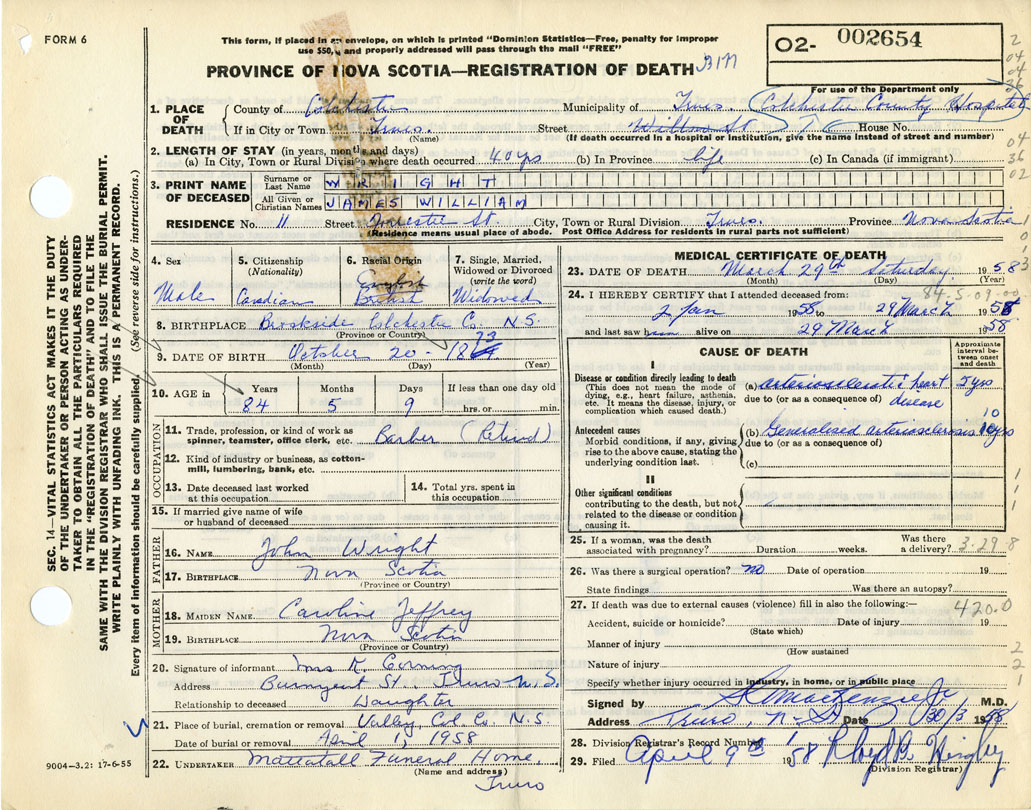 FORM 6
This form, if placed in an envelope, on which is printed "Dominion Statistics—Free, penalty for improper
use $50, and properly addressed will pass through the mail "FREE"
O2- 002654
PROVINCE OF NOVA SCOTIA—REGISTRATION OF DEATH
For use of the Department only
1. PLACE OF DEATH
County of Colchester Municipality of Truro. Colchester County Hospital
If in City or Town Truro. Street Willow St House No.
(Name) (If death occurred in a hospital or institution, give the name instead of street and number)
2. LENGTH OF STAY (in years, months and days)
(a) In City, Town or Rural Division where death occurred 40 yrs (b) In Province life (c) In Canada (if immigrant)
3. PRINT NAME OF DECEASED
Surname or Last Name WRIGHT
All Given or Christian Names JAMES WILLIAM
RESIDENCE No. 11 Street Forrester St. City, Town or Rural Division Truro. Province Nova Scotia
(Residence means usual place of abode. Post Office Address for residents in rural parts not sufficient)
4. Sex
Male
5. Citizenship
(Nationality)
Canadian
6. Racial Origin
English
British
7. Single, Married, Widowed or Divorced
(write the word)
Widowed
8. BIRTHPLACE Brookside Colchester Co. N.S.
(Province or Country)
9. DATE OF BIRTH October 20 - 1873
(Month) (Day) (Year)
10. AGE in
Years Months Days If less than one day old
84 5 9 hrs. or min.
OCCUPATION
11. Trade, profession, or kind of work as
spinner, teamster, office clerk, etc. Barber (Retired)
12. Kind of industry or business, as cotton-
mill, lumbering, bank, etc.
13. Date deceased last worked
at this occupation
14. Total yrs. spent in
this occupation
15. If married give name of wife
or husband of deceased
FATHER
16. NAME John Wright
17. BIRTHPLACE Nova Scotia
(Province or Country)
MOTHER
18. MAIDEN NAME Caroline Jeffrey
19. BIRTHPLACE Nova Scotia
(Province or Country)
20. Signature of informant Mrs K. Corning
Address Burnyeat St., Truro N.S.
Relationship to deceased Daughter
21. Place of burial, cremation or removal Valley, Col. Co. N.S.
Date of burial or removal April 1, 1958
22. UNDERTAKER Mattatall Funeral Home,
(Name and address)
Truro
MEDICAL CERTIFICATE OF DEATH
23. DATE OF DEATH March 29th Saturday 1958
(Month) (Day) (Year)
84-5-09-00
24. I HEREBY CERTIFY that I attended deceased from:
2 Jan 1958 to 29 March 1958
and last saw him alive on 29 March 1958
CAUSE OF DEATH
Approximate interval between onset and death
I
Disease or condition directly leading to death
(This does not mean the mode of
dying, e.g., heart failure, asthenia,
etc. It means the disease, injury, or
complication which caused death.)
(a) arteriosclerotic heart 5 yrs
due to (or as a consequence of) disease
Antecedent causes
Morbid conditions, if any, giving
rise to the above cause, stating the
underlying condition last.
(b) Generalised arteriosclerosis 10 yrs
due to (or as a consequence of)
(c)
II
Other significant conditions
contributing to the death, but not
related to the disease or condition
causing it.
25. If a woman, was the death
associated with pregnancy? Duration weeks. Was there
a delivery? 3-29-8
26. Was there a surgical operation? no Date of operation 19
State findings Was there an autopsy?
27. If death was due to external causes (violence) fill in also the following:— 420.0
Accident, suicide or homicide? Date of injury 19
(State which)
Manner of injury
(How sustained
Nature of injury
Specify whether injury occurred in industry, in home, or in public place
Signed by MacKenzie M.D.
Address Truro, N.S. Date 30/3 1958
28. Division Registrar's Record Number
29. Filed April 9th 1958
(Division Registrar)
SEC. 14—VITAL STATISTICS ACT MAKES IT THE DUTY
OF THE UNDERTAKER OR PERSON ACTING AS UNDER-
TAKER TO OBTAIN ALL THE PARTICULARS REQUIRED
IN THE "REGISTRATION OF DEATH" AND TO FILE THE
SAME WITH THE DIVISION REGISTRAR WHO SHALL ISSUE THE BURIAL PERMIT.
WRITE PLAINLY WITH UNFADING INK. THIS IS A PERMANENT RECORD.
Every item of information should be carefully supplied. (See reverse side for instructions.)
9004—3.2: 17-6-55